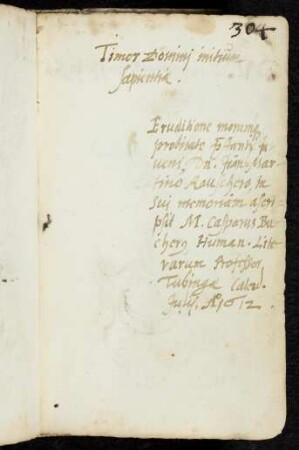 304
Timor Dominj initium
sapientiæ.
Eruditione morumq
probitate
venj Dn. Mar-
tino Rauschero, in
sui memoriam ascri-
psit M. Casparus Bu-
cherq Human. Lite-
rarum Professor
Tubingæ Calen.
Julij. Aº 1612.